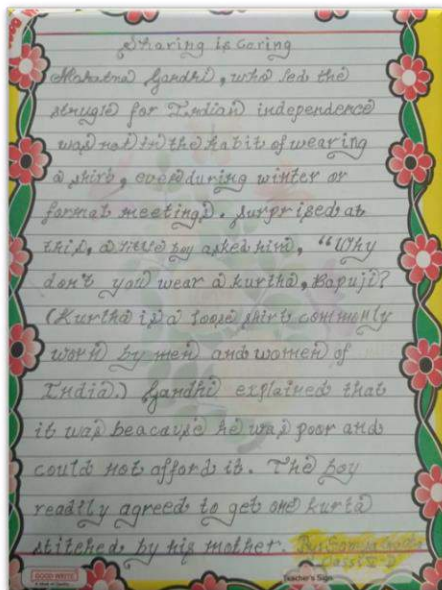 Sharing is Caring
Mahatma Gandhi, who led the
strugle for Indian independence
was not in the habit of wearing
a shirt, even during winter or
format meetings. Surprised at
this, a little boy asked him, "Why
don't you wear a kurtha, Bapuji?
(Kurtha is a loose shirt commonly
worn by men and women of
India.) Gandhi explained that
it was beacause he was poor and
could not afford it. The boy
readily agreed to get one kurta
stitched by his mother. By:
Class
GOOD WRITE
Teacher's Sign